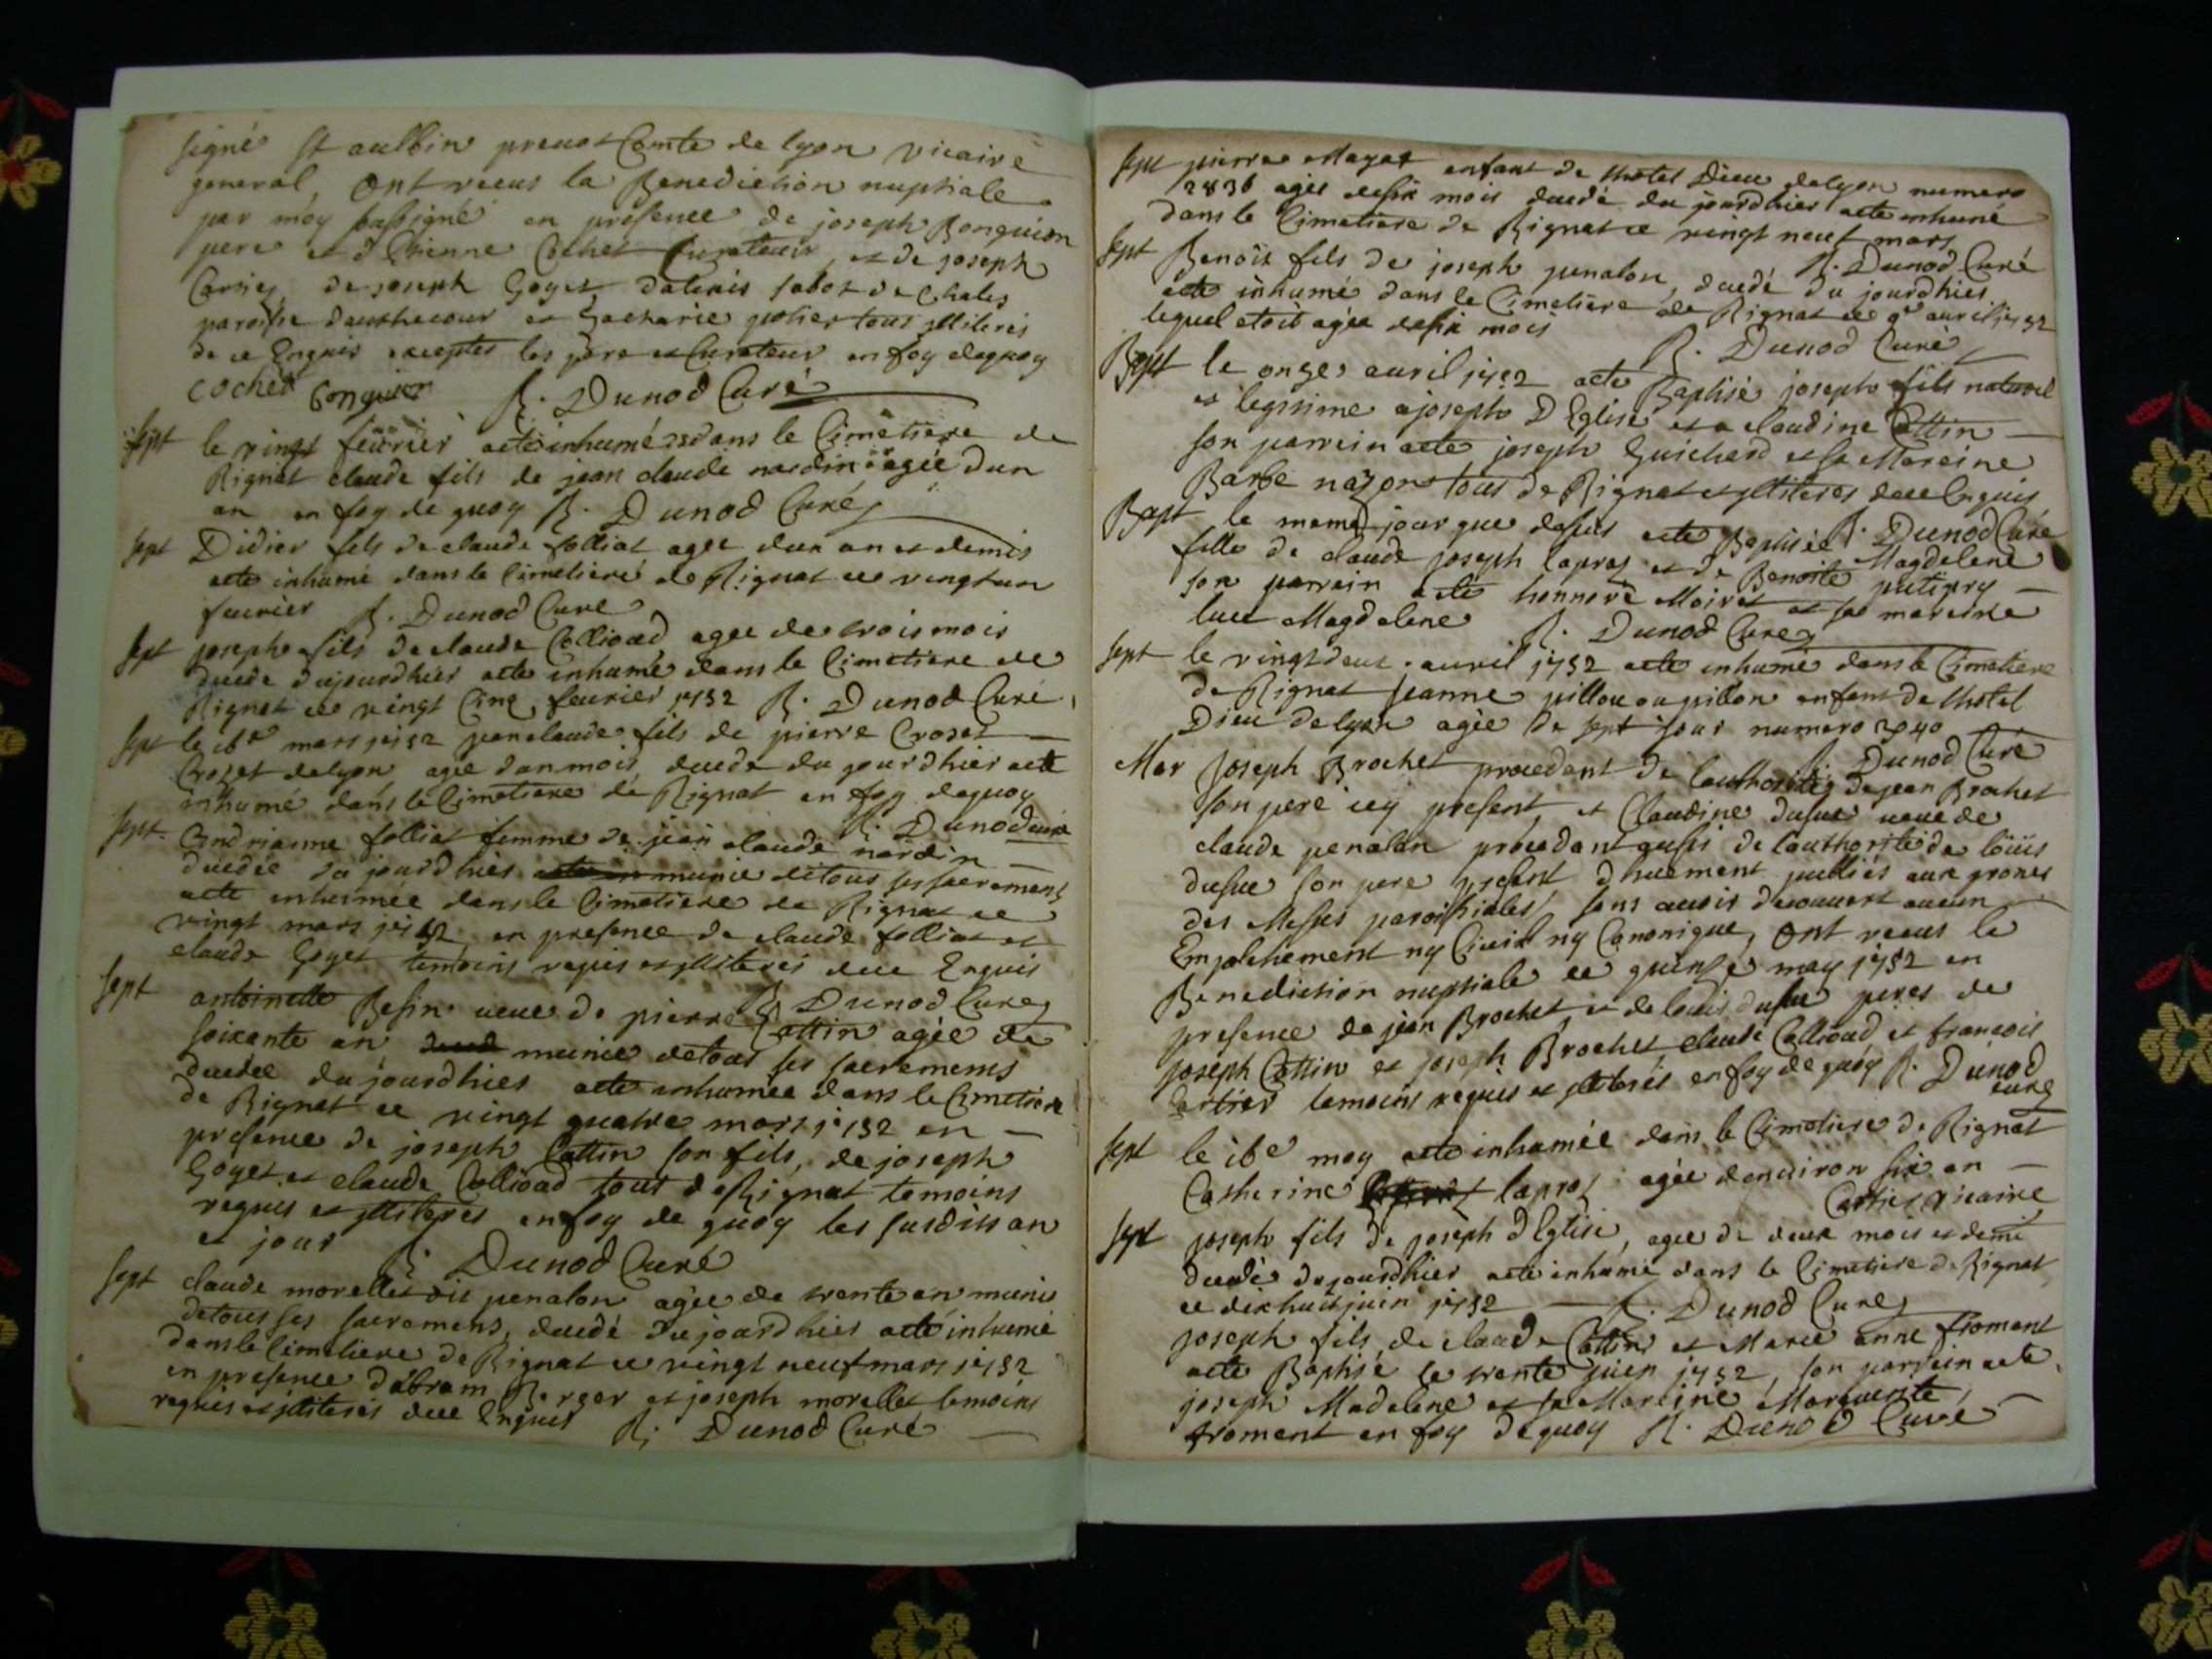 signé St aulbin prevot Comte de lyon vicaire
general, ont receus la Benediction nuptiale
par moy soussigné en presence de joseph Bonguion
pere et d Etienne Cochet Curateur, et de joseph
de joseph Goyet
paroisse et Zacharie potier tous illiterés
de ce Enquis exceptés les pere et Curateur en foy dequoy
cochet R. Dunod Curé
Sept le vingt feuvrier a eté inhumé dans le Cimetiere de
Rignat claude fils de jean claude nardin agée dun
an en foy de quoy R. Dunod Curé
Sept Didier fils de claude folliat agée dun an et demis
a eté inhumé dans le Cimetiere de Rignat ce vingt un
feuvrier R. Dunod Curé
Sept joseph fils de claude Collioud agée de trois mois
decedé dujourdhier a eté inhumé dans le Cimetiere de
Rignat ce vingt Cinq feuvrier 1752 R. Dunod Curé
Sept le 16e mars 1752 jean claude fils de pierre Crozet
Crozet delyon agée dun mois decedé du jourdhier a eté
inhumé dans le Cimetiere de Rignat en foy dequoy
R. Dunod curé
Sept. Andrianne folliat femme de jean claude nardin
decedée du jourdhier munie de tous ses sacremens
a eté inhumée dans le Cimetiere de Rignat ce
vingt mars 1752 en presence de claude folliat et
claude Goyet temoins requis et illiterés de ce Enquis
R. Dunod Curé
Sept antoinette Besin veuve de pierre Cottin agée de
soixante an munie de tous ses sacremens
decedée du jourdhier a eté inhumée dans le Cimetiere
de Rignat ce vingt quatre mars 1752 en
presence de joseph Cottin son fils, de joseph
Goyet et claude Collioud tous de Rignat temoins
requis et illiterés en foy de quoy les susdits an
et jour R. Dunod Curé
Sept claude morellet dit penalon agée de trente an munis
de tous ses sacremens, decedé dujourdhier a eté inhumé
dans le Cimetiere de Rignat ce vingt neuf mars 1752
en presence dabram Berger et joseph morellet temoins
requis et illiterés de ce Enquis R. Dunod Curé
Sept pierre Mayat enfant de lhotel Dieu delyon numero
2836 agée de six mois decedé du jourdhier a eté inhumé
dans le Cimetiere de Rignat ce vingt neuf mars
R. Dunod Curé
Sept Benoit fils de joseph penalon, decedé du jourdhier
a eté inhumé dans le Cimetiere de Rignat ce 9e auril 1752
lequel etoit agée de six mois
R. Dunod Curé
Bapt le onze auril 1752 a eté Baptisé joseph fils naturel
et legitime a joseph D Eglise et a claudine Cottin
son parrein a eté joseph Guichard et sa Mareine
Barbe nazon tous de Rignat et illiteres de ce Enquis
R. Dunod Curé
Bapt le meme jour que dessus a eté Baptisée Magdelene
fille de claude joseph lapraz et de Benoite putigny
son parrein a eté honnoré Moiret et sa mareine
luce Magdelene R. Dunod Curé
Sept le vingt deux auril 1752 a eté inhumé dans le Cimetiere
de Rignat Jeanne pillou ou pillon enfant de lhotel
Dieu delyon agée de sept jour numero
R. Dunod Curé
Mar Joseph Brochet procedant de lauthorité de jean Brochet
son pere icy present, et Claudine dufue veuve de
claude penalon procedant aussi de lauthorité de loüis
dufue son pere present dhuement publiés aux prones
des Messes paroissiales, sans avoir decouvert aucun
Empechement ny Civil ny Canonique, ont receus la
Benediction nuptiale ce quinse may 1752 en
presence de jean Brochet, et de louis dufue peres de
joseph Cottin et joseph Brochet, claude Collioud et francois
Cartier temoins requis et illiterés en foy de quoy R. Dunod
curé
Sept le 16e may a eté inhumée dans le Cimetiere de Rignat
Catherine lapraz agée denuiron six an
Cartier vicaire
Sept joseph fils de joseph d Eglise, agée de deux mois et demi
decedé dujourdhier a eté inhumé dans le Cimetiere de Rignat
ce dix huit juin 1752 R. Dunod Curé
joseph fils de claude Cottin et Marie anne froment
a eté Baptisé le trente juin 1752, son parrein a eté
joseph Madelene et sa Mareine Marguerite
froment en foy dequoy R. Dunod Curé